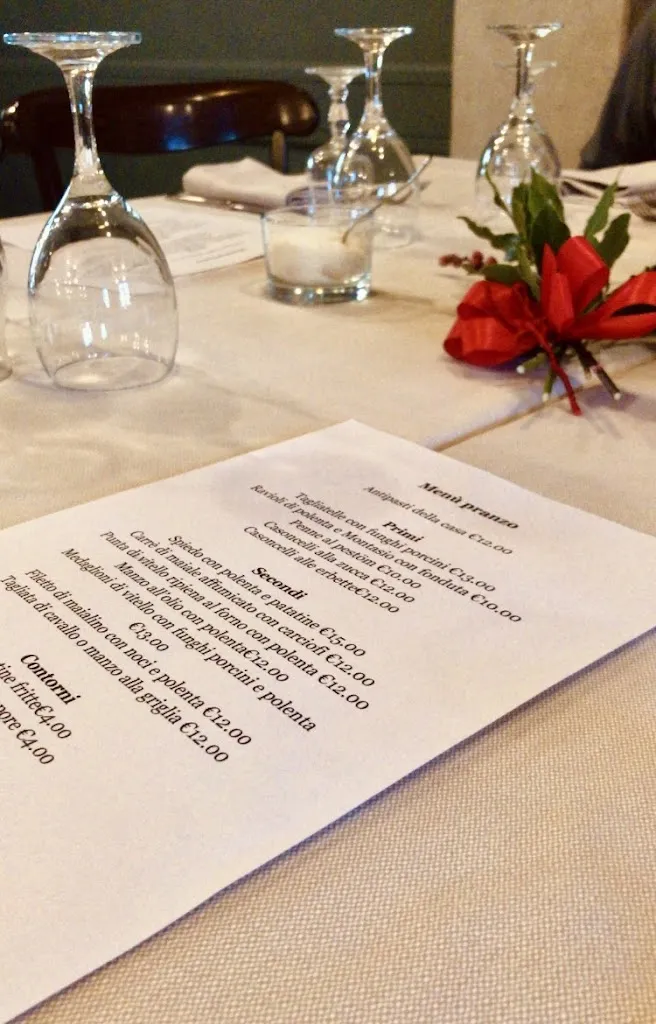 Menù pranzo
Antipasti della casa €12.00
Primi
Tagliatelle con funghi porcini €13.00
Ravioli di polenta e Montasio con fonduta €10.00
Penne al pestòm €10.00
Casoncelli alla zucca €12.00
Casoncelli alle erbette€12.00
Secondi
Spiedo con polenta e patatine €15.00
Carrè di maiale affumicato con carciofi €12.00
Punta di vitello ripiena al forno con polenta €12.00
Manzo all'olio con polenta€12.00
Medaglioni di vitello con funghi porcini e polenta
€13.00
Filetto di maialino con noci e polenta €12.00
Tagliata di cavallo o manzo alla griglia €12.00
Contorni
fritte€4.00
€4.00